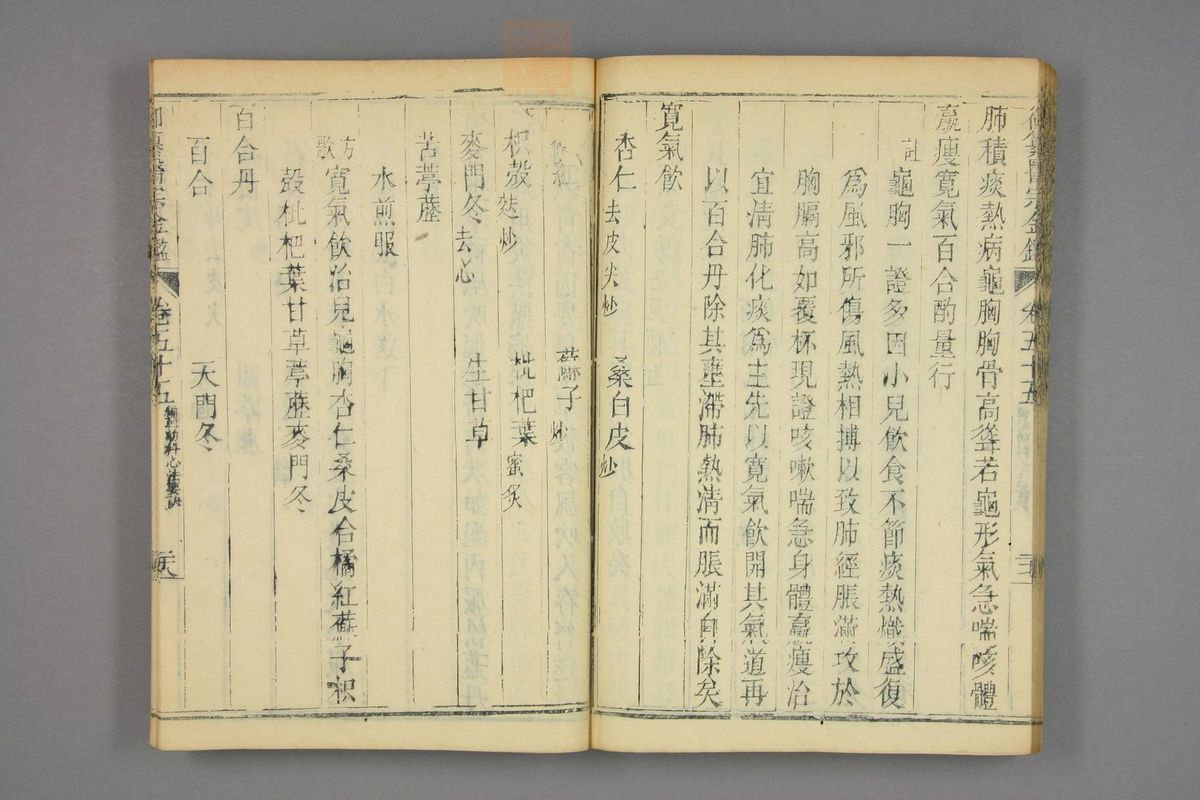 肺積痰熱病龜胸胸骨高聳若龜形氣急喘咳體
羸瘦寬氣百合酌量行
註
龜胸一證多因小兒飲食不節痰熱熾盛復
為風邪所傷風熱相搏以致肺經脹滿攻於
胸膈高如覆杯現證咳嗽喘急身體羸瘦治
宜清肺化痰為主先以寬氣飲開其氣道再
以百合丹除其壅滯肺熱清而脹滿自除矣
寬氣飲
杏仁去皮尖炒 桑白皮炒
蘇子炒
枳殼麩炒 枇杷葉蜜炙
麥門冬去心 生甘草
苦葶藶
水煎服
方歌
寬氣飲治兒龜胸杏仁桑皮合橘紅蘇子枳
殼枇杷葉甘草葶藶麥門冬
百合丹
百合 天門冬
御纂醫宗金鑑 卷五十五 編輯幼科心法要訣